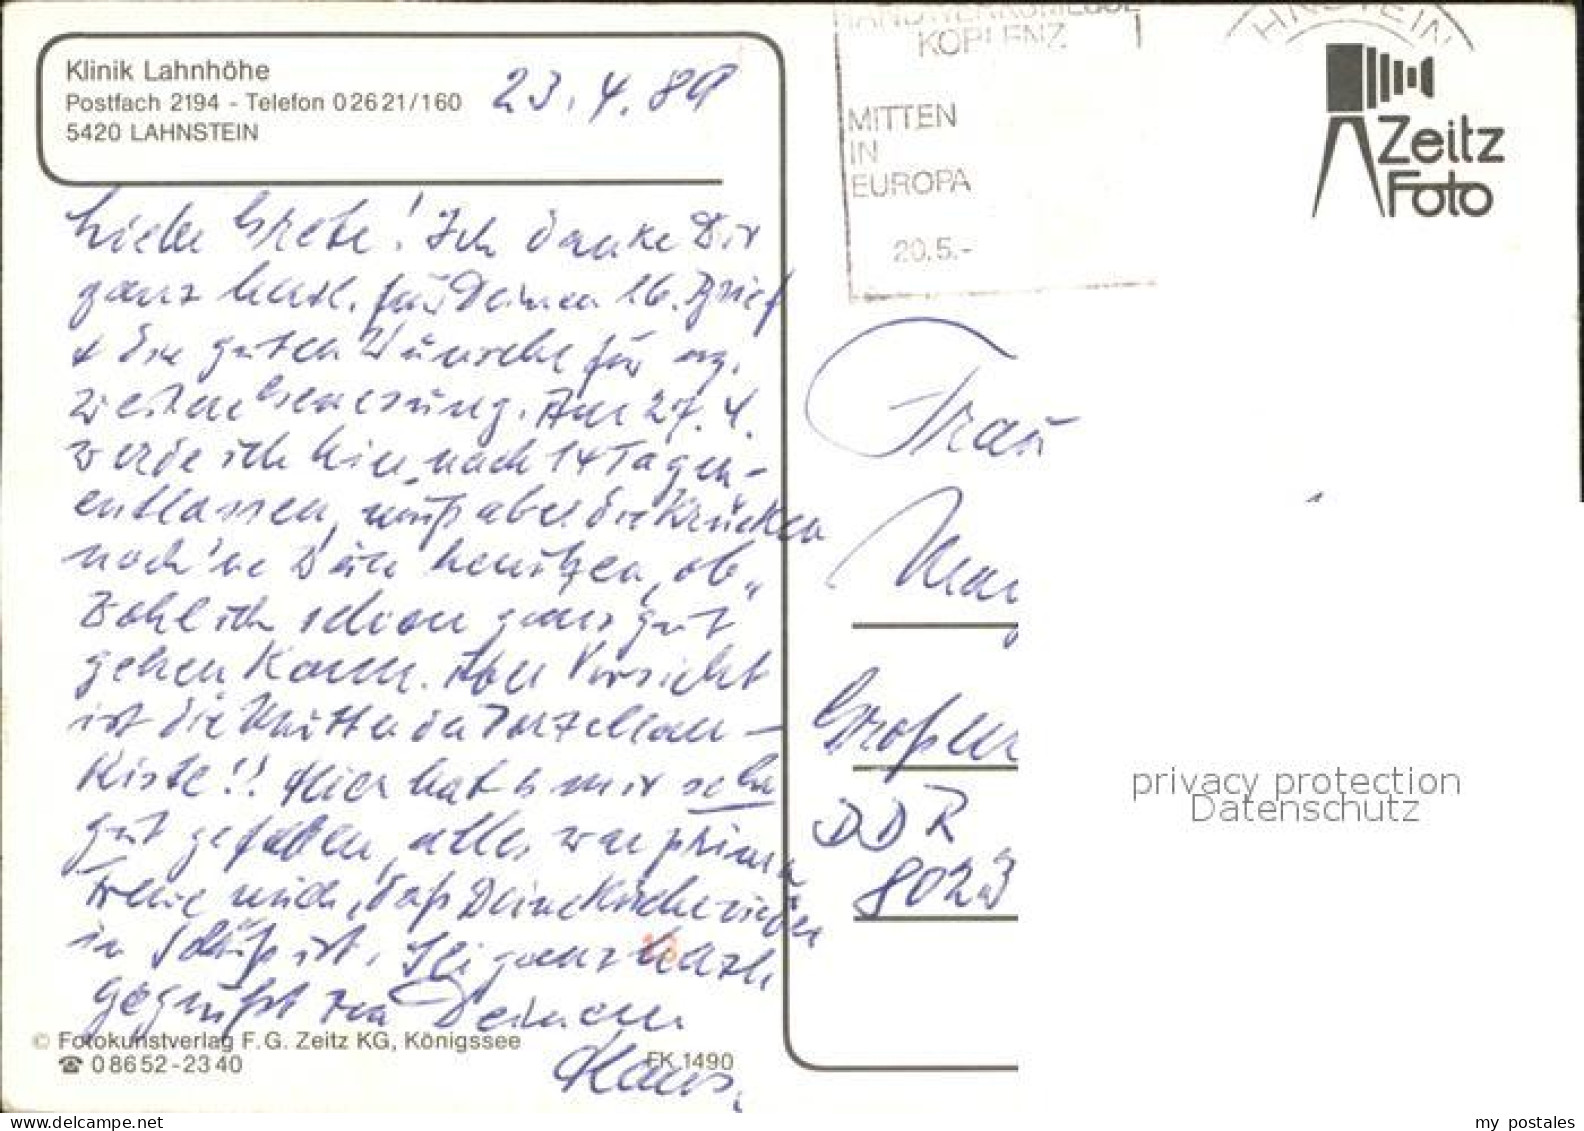 HANDWERKSMESSE
KOBLENZ
MITTEN
IN
EUROPA
20.5.-
HNSTEIN
Zeitz
Foto
Klinik Lahnhöhe
Postfach 2194 - Telefon 02621/160
5420 LAHNSTEIN
23.4.89
Liebe Grete! Ich danke Dir
ganz herzl. für Deinen lb. Brief
+ die guten Wünsche für
Am 27.4.
werde ich hier nach 14 Tagen
entlassen, muß aber die Krücken
noch 'ne benützen, ob-
wohl ich schon ganz gut
gehen kann. Aber Vorsicht
ist die Mutter der Porzellan-
Kiste!! Hier hat es mir sehr
gut gefallen, alles war prima
Freue mich, daß Deine Küche wieder
in Schuß ist. Sei ganz herzl.
gegrüßt von Deinem
Klaus.
© Fotokunstverlag F.G. Zeitz KG, Königssee
☎ 08652-2340
FK 1490
Frau
DDR
8023
privacy protection
Datenschutz
my postales